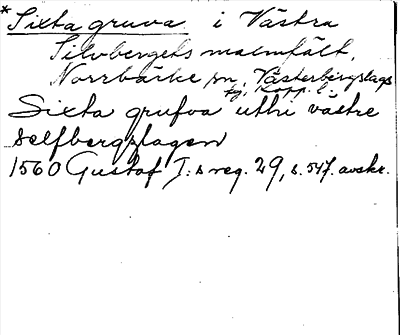 *Sixta gruva i Västra
Silvbergets malmfält,
Norrbärke sn, Västerbergslags
tg, Kopp. l.
Sixta grufva uthi vastre
selfbergzlagen
1560 Gustaf I:s reg. 29, s. 547. avskr.